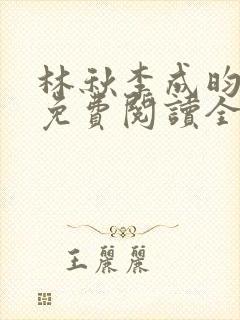 林秋李成昀
免費閱讀全
王麗麗